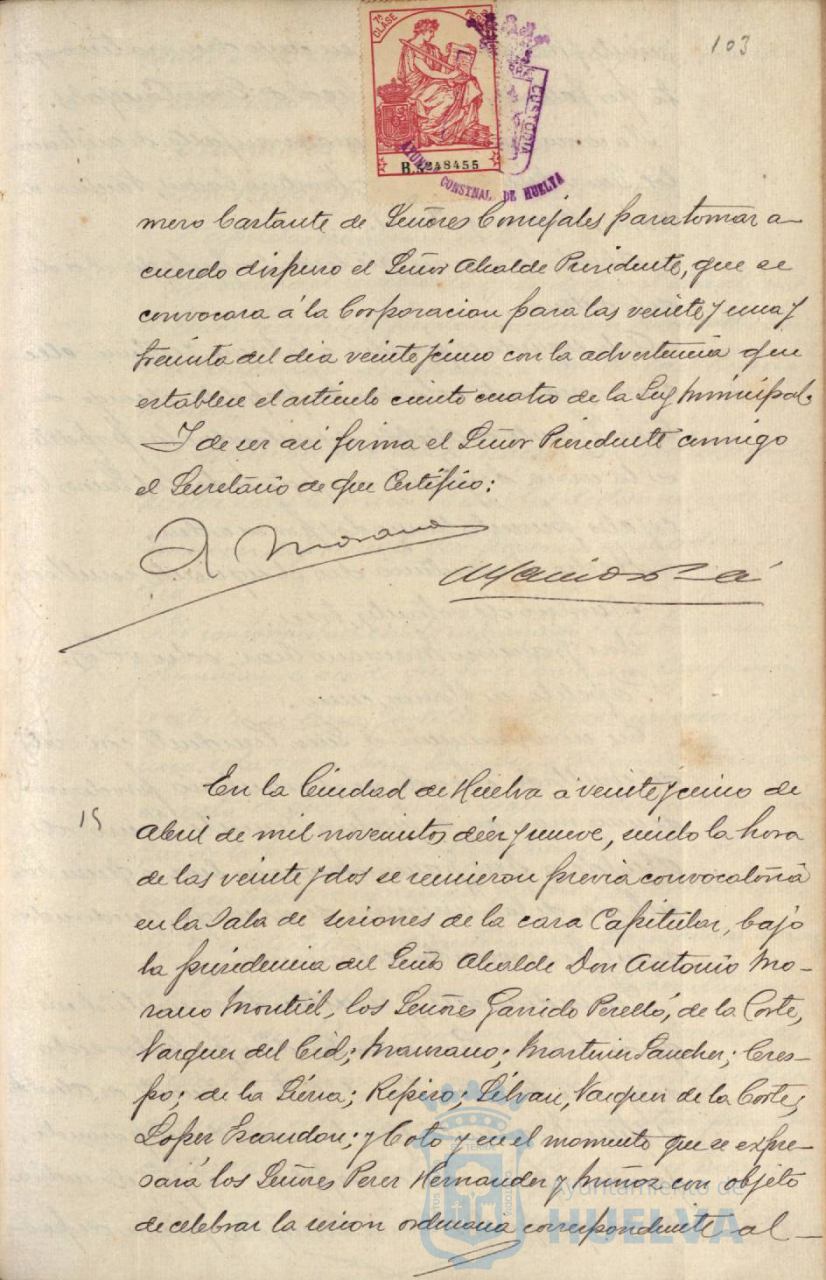 103
7ª CLASE
B.5,248455
CUSTODIA
CONSTNAL DE HUELVA
mero bastante de Señores Concejales para tomar a-
cuerdo dispuso el Señor Alcalde Presidente, que se
convocara á la Corporacion para las veinte y una y
treinta del dia veinte y cinco con la advertencia que
establece el artículo ciento cuatro de la Ley Municipal.
Y de ser asi firma el Señor Presidente conmigo
el Secretario de que Certifico:
A Morano
15
En la Ciudad de Huelva a veinte y cinco de
Abril de mil novecientos diez y nueve, siendo la hora
de las veinte y dos se reunieron previa convocatoria
en la Sala de sesiones de la casa Capitular, bajo
la presidencia del Señor Alcalde Don Antonio Mo-
rano Montiel, los Señores Garrido Perelló, de la Corte,
Vazquez del Cid; Manzano; Martinez Sanchez; Cres-
po; de la Sierra; Repiso; Silvan, Vazquez de la Corte;
Lopez Escondon; y Coto y en el momento que se expre-
sará los Señores Perez Hernandez y Muñoz con objeto
de celebrar la sesion ordinaria correspondiente al-
Ayuntamiento de
HUELVA